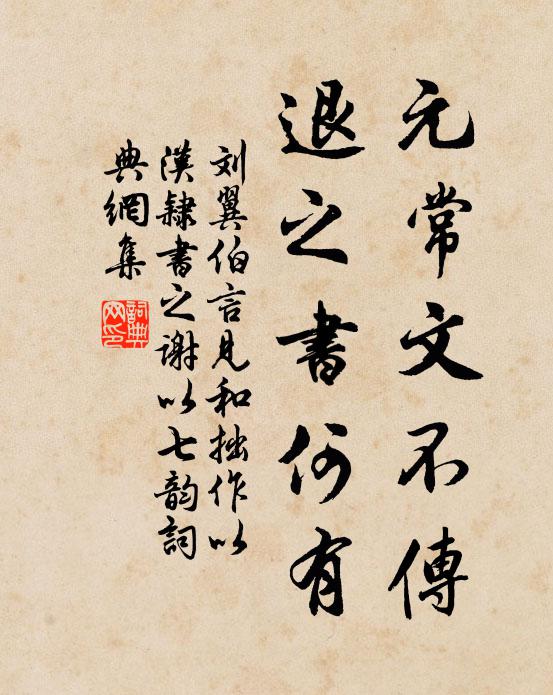 元常文不傳
退之書何有
刘翼伯言見和拙作以
漢隸書之谢以七韵詞
典網集
詞典网印